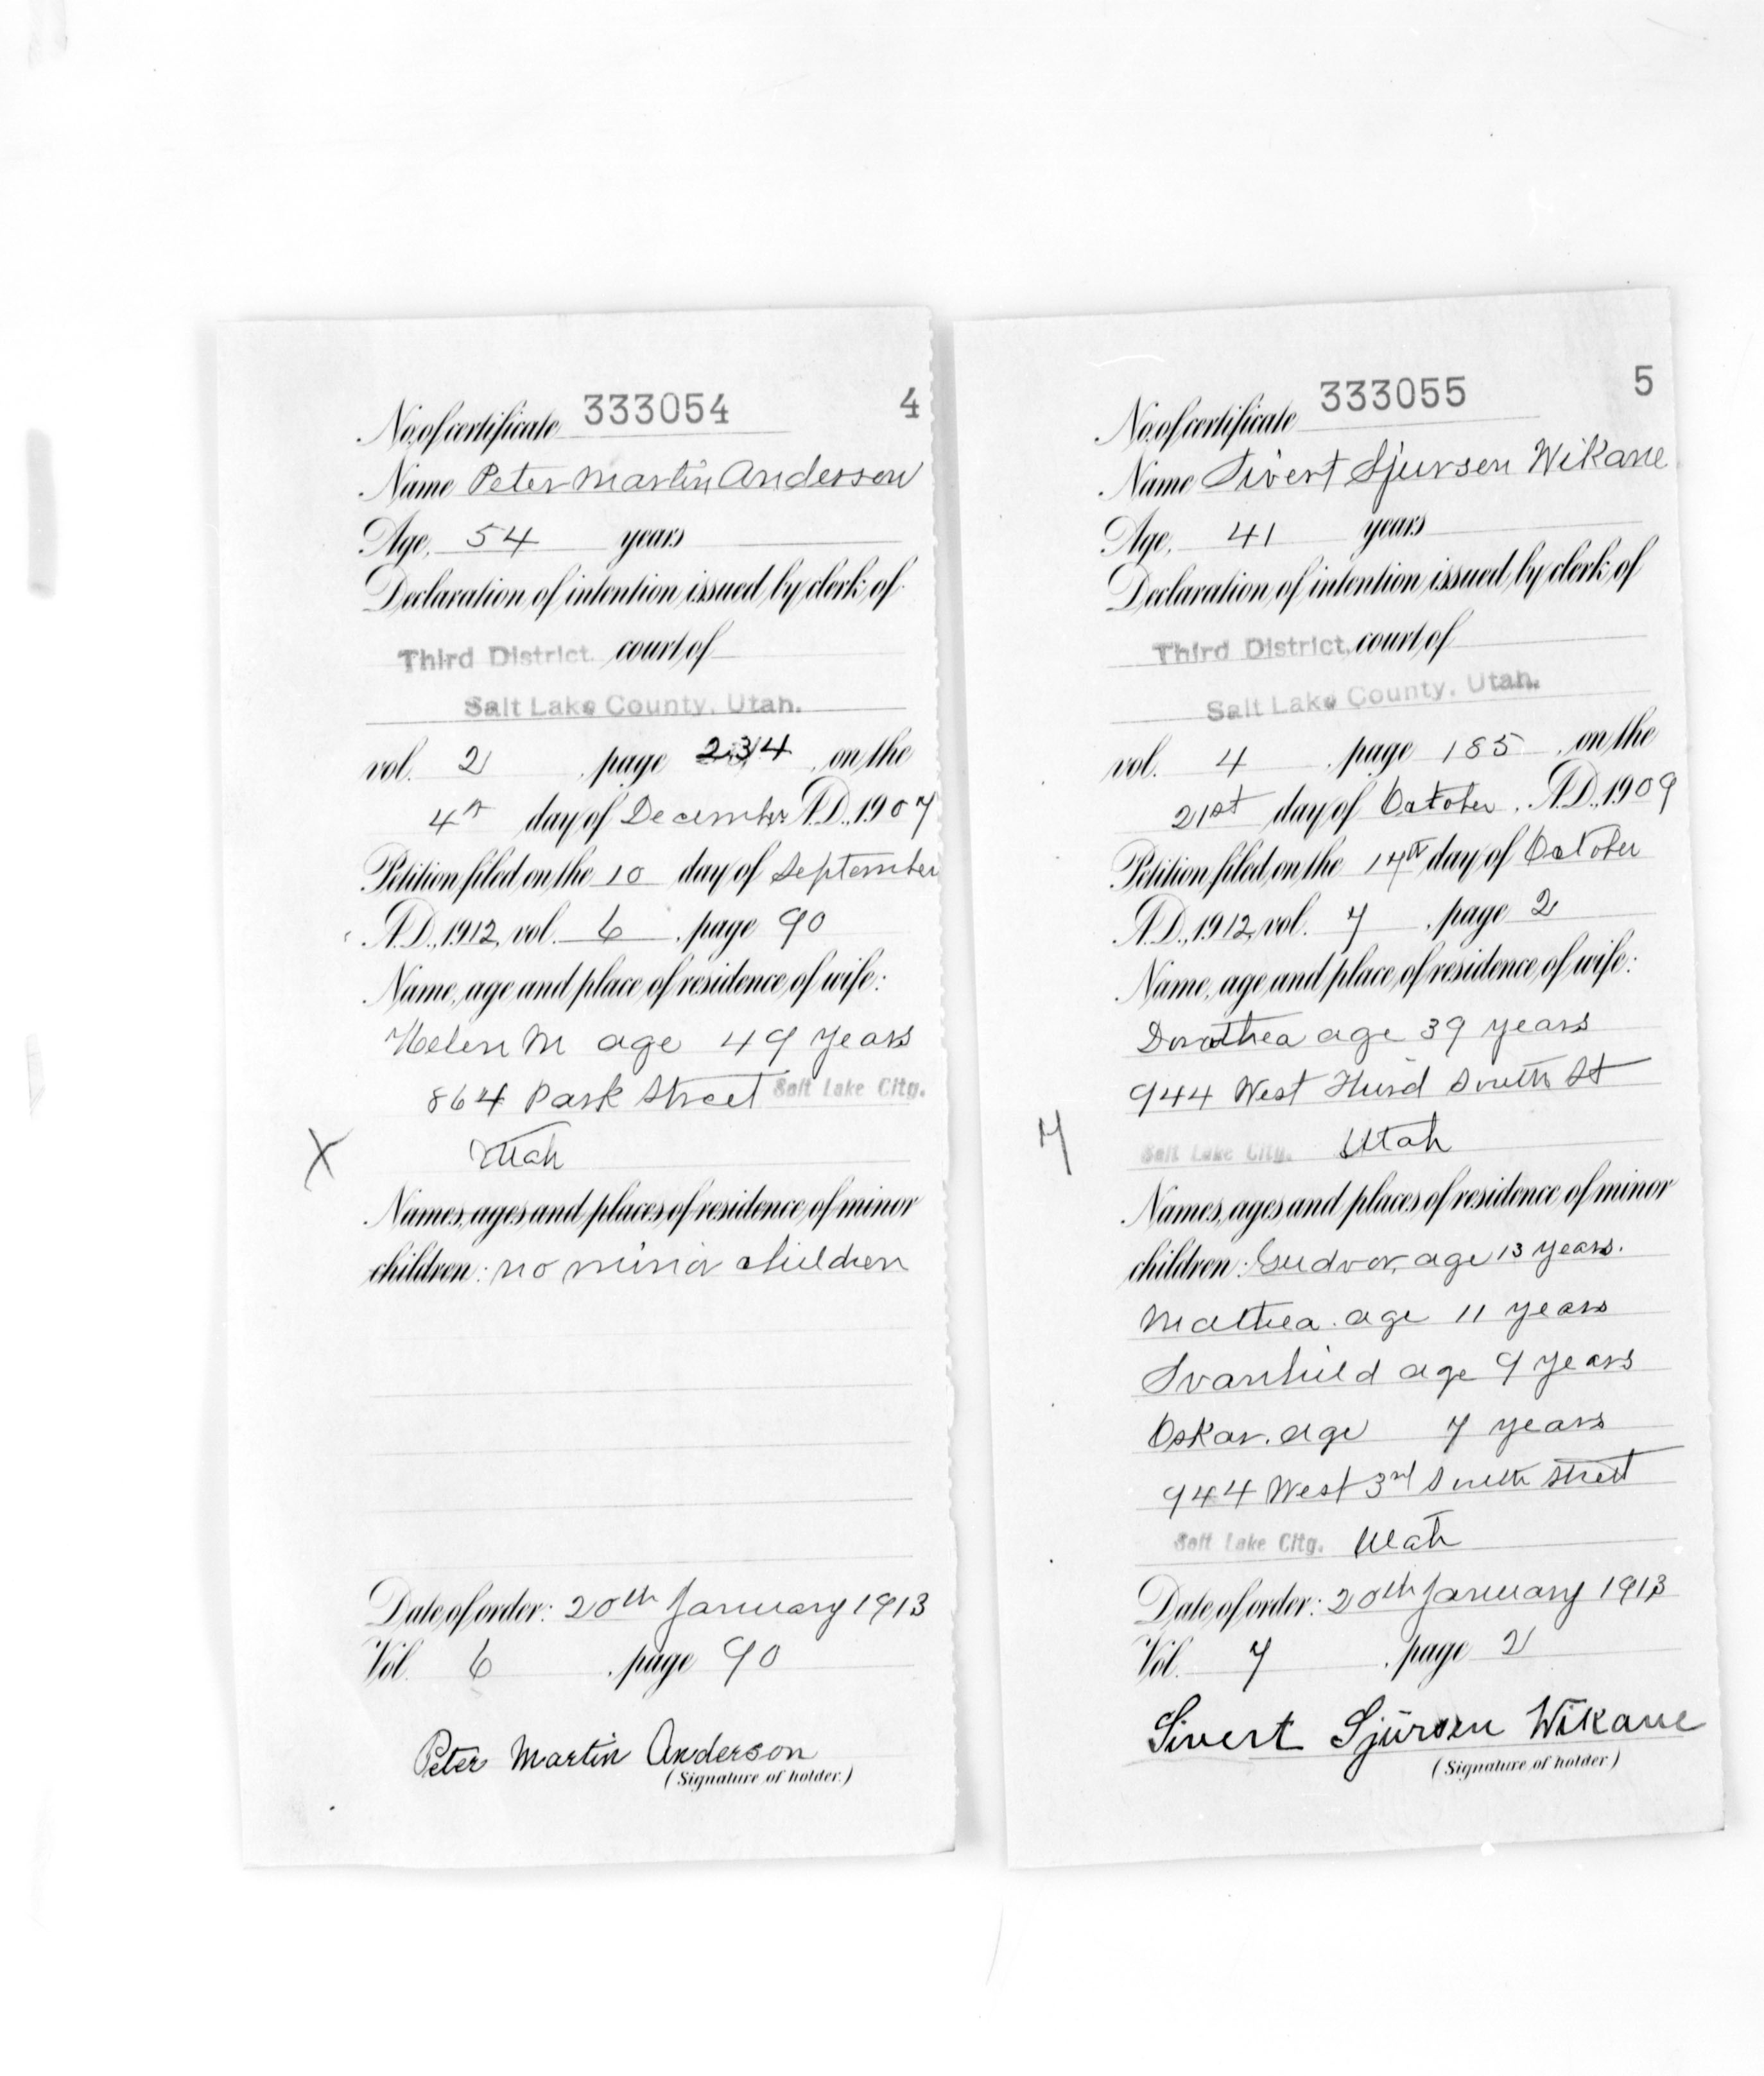 No. of certificate 333054 4
Name Peter Martin Anderson
Age, 54 years
Declaration of intention issued by clerk of
Third District court of
Salt Lake County, Utah.
vol. 2, page 234, on the
4th day of December A.D., 1907
Petition filed on the 10 day of September
A.D., 1912, vol. 6, page 90
Name, age and place of residence of wife:
Helen M age 49 years
864 Park Street Salt Lake City.
X
Utah
Names, ages and places of residence of minor
children: no minor children
Date of order: 20th January 1913
Vol. 6, page 90
Peter Martin Anderson
(Signature of holder.)
No. of certificate 333055 5
Name Sivert Sjursen Wikane
Age, 41 years
Declaration of intention issued by clerk of
Third District, court of
Salt Lake County, Utah.
vol. 4, page 185, on the
21st day of October, A.D., 1909
Petition filed on the 14th day of October
A.D., 1912, vol. 7, page 2
Name, age and place of residence of wife:
Dorothea age 39 years
944 West Third South St
7
Salt Lake City. Utah
Names, ages and places of residence of minor
children: Gudvor, age 13 years.
Mathea. age 11 years
Svanhild age 9 years
Oskar. age 7 years
944 West 3rd South Street
Salt Lake City. Utah
Date of order: 20th January 1913
Vol. 7, page 2
Sivert Sjürsen Wikane
(Signature of holder)